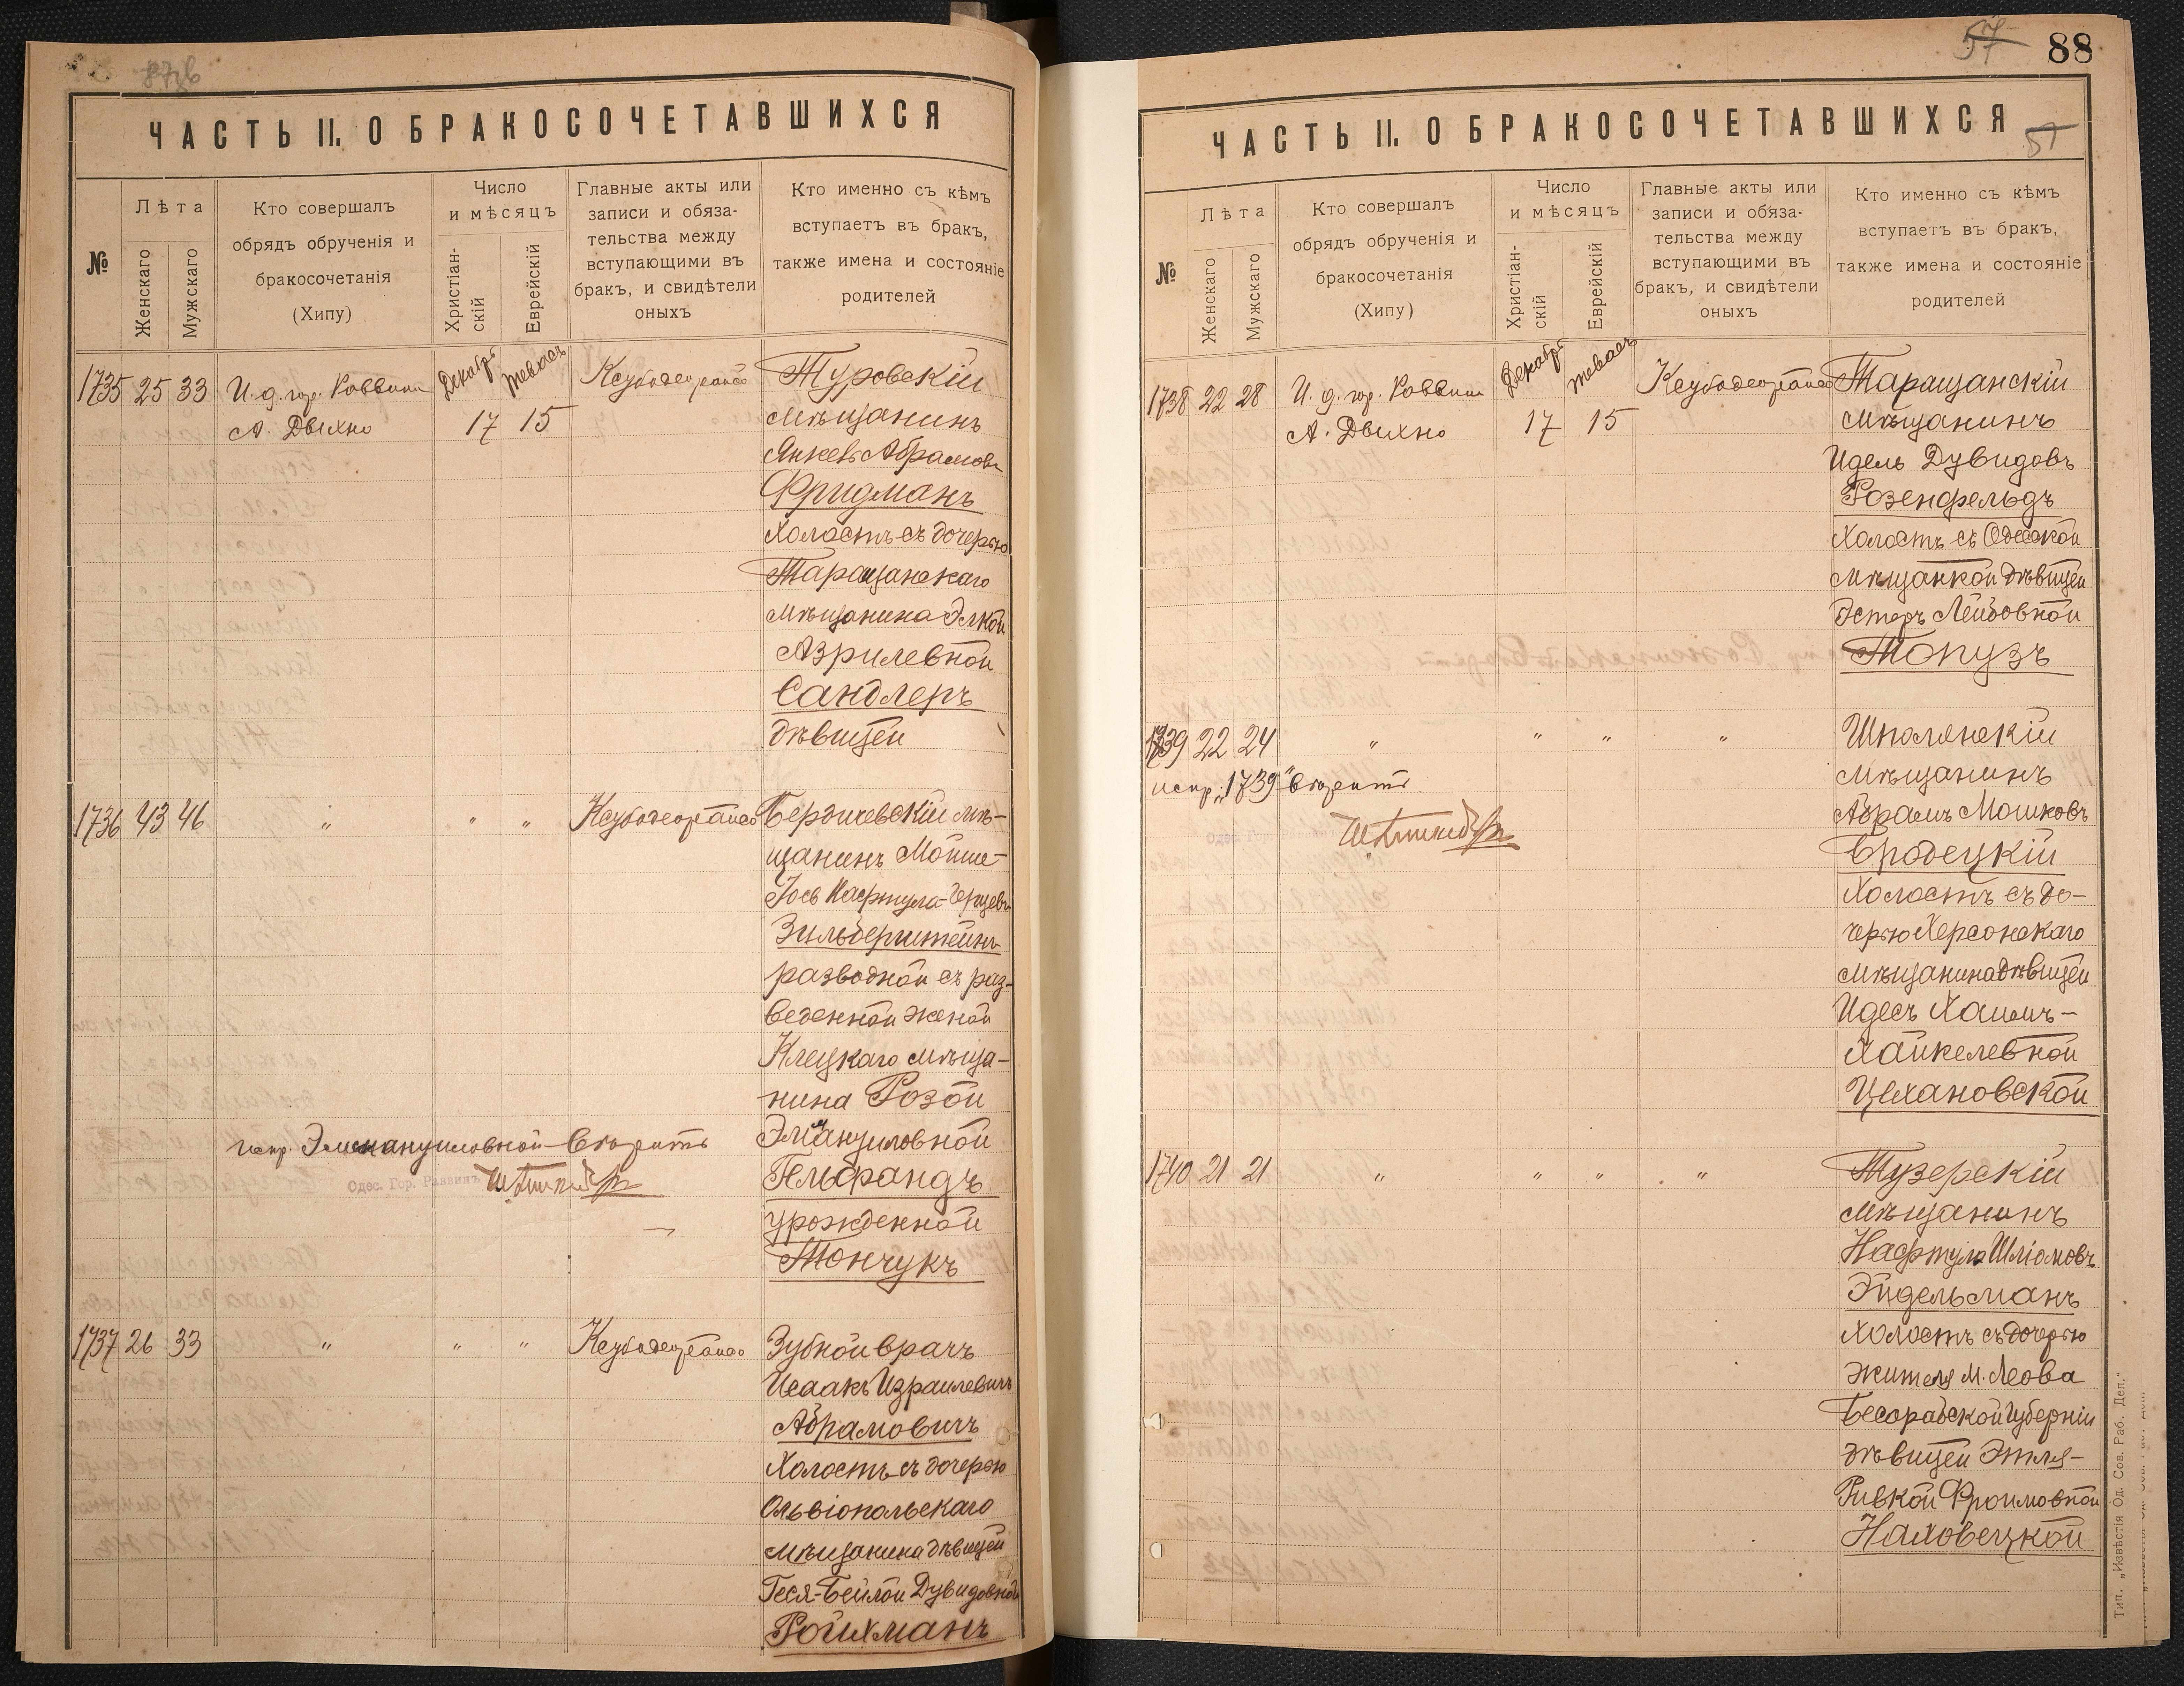 ЧАСТЬ II. О БРАКОСОЧЕТАВШИХСЯ
№
Лѣта
Женскаго
Мужскаго
Кто совершалъ
обрядъ обрученія и
бракосочетанія
(Хипу)
Число
и мѣсяцъ
Христіан-
скій
Еврейскій
Главные акты или
записи и обяза-
тельства между
вступающими въ
бракъ, и свидѣтели
оныхъ
Кто именно съ кѣмъ
вступаетъ въ бракъ,
также имена и состояніе
родителей
1735 25 33 И. д. гор. Раввина Декабрь Тевесъ Туровскій
А. Двихно 17 15 мѣщанинъ
Янкевъ Абрамовъ
Фридманъ
холостъ съ дочерью
Таращанскаго
мѣщанина Элкой
Азрилевной
Сандлеръ
дѣвицей
1736 43 46 " " " Бердичевскій мѣ-
щанинъ Мойше-
Іось Нафтула-Герцевъ
Зильберштейнъ
разводной съ раз-
веденной женой
Клецкаго мѣща-
нина Розой
испр. Эммануиловной вѣрить Эмануиловной
Одес. Гор. Раввинъ Гельфандъ
урожденной
Тончукъ
1737 26 33 " " " Зубной врачъ
Исаакъ Израилевичъ
Абрамовичъ
холостъ съ дочерью
Ольвіопольскаго
мѣщанина дѣвицей
Геся-Бейлой Дувидовной
Ройхманъ
57 88
ЧАСТЬ II. О БРАКОСОЧЕТАВШИХСЯ
57
№
Лѣта
Женскаго
Мужскаго
Кто совершалъ
обрядъ обрученія и
бракосочетанія
(Хипу)
Число
и мѣсяцъ
Христіан-
скій
Еврейскій
Главные акты или
записи и обяза-
тельства между
вступающими въ
бракъ, и свидѣтели
оныхъ
Кто именно съ кѣмъ
вступаетъ въ бракъ,
также имена и состояніе
родителей
1738 22 28 И. д. гор. Раввина Декабрь Тевесъ Таращанскій
А. Двихно 17 15 мѣщанинъ
Идель Дувидовъ
Розенфельдъ
холостъ съ Одесской
мѣщанкой дѣвицей
Эстеръ Лейбовной
Топузъ
1739 22 24 " " " " Шполянскій
испр. "1739" вѣрить мѣщанинъ
Абрамъ Мошковъ
Бродецкій
холостъ съ до-
черью Херсонскаго
мѣщанина дѣвицей
Идесъ Хаимъ-
Хайкелевной
Цехановской
1740 21 21 " " " " Тузерскій
мѣщанинъ
Нафтула Шліомовъ
Эйдельманъ
холостъ съ дочерью
жителя м. Леова
Бесарабской губерніи
дѣвицей Этля-
Ривкой Фроимовной
Наховецкой
Тип. „Извѣстія Од. Сов. Раб. Деп."